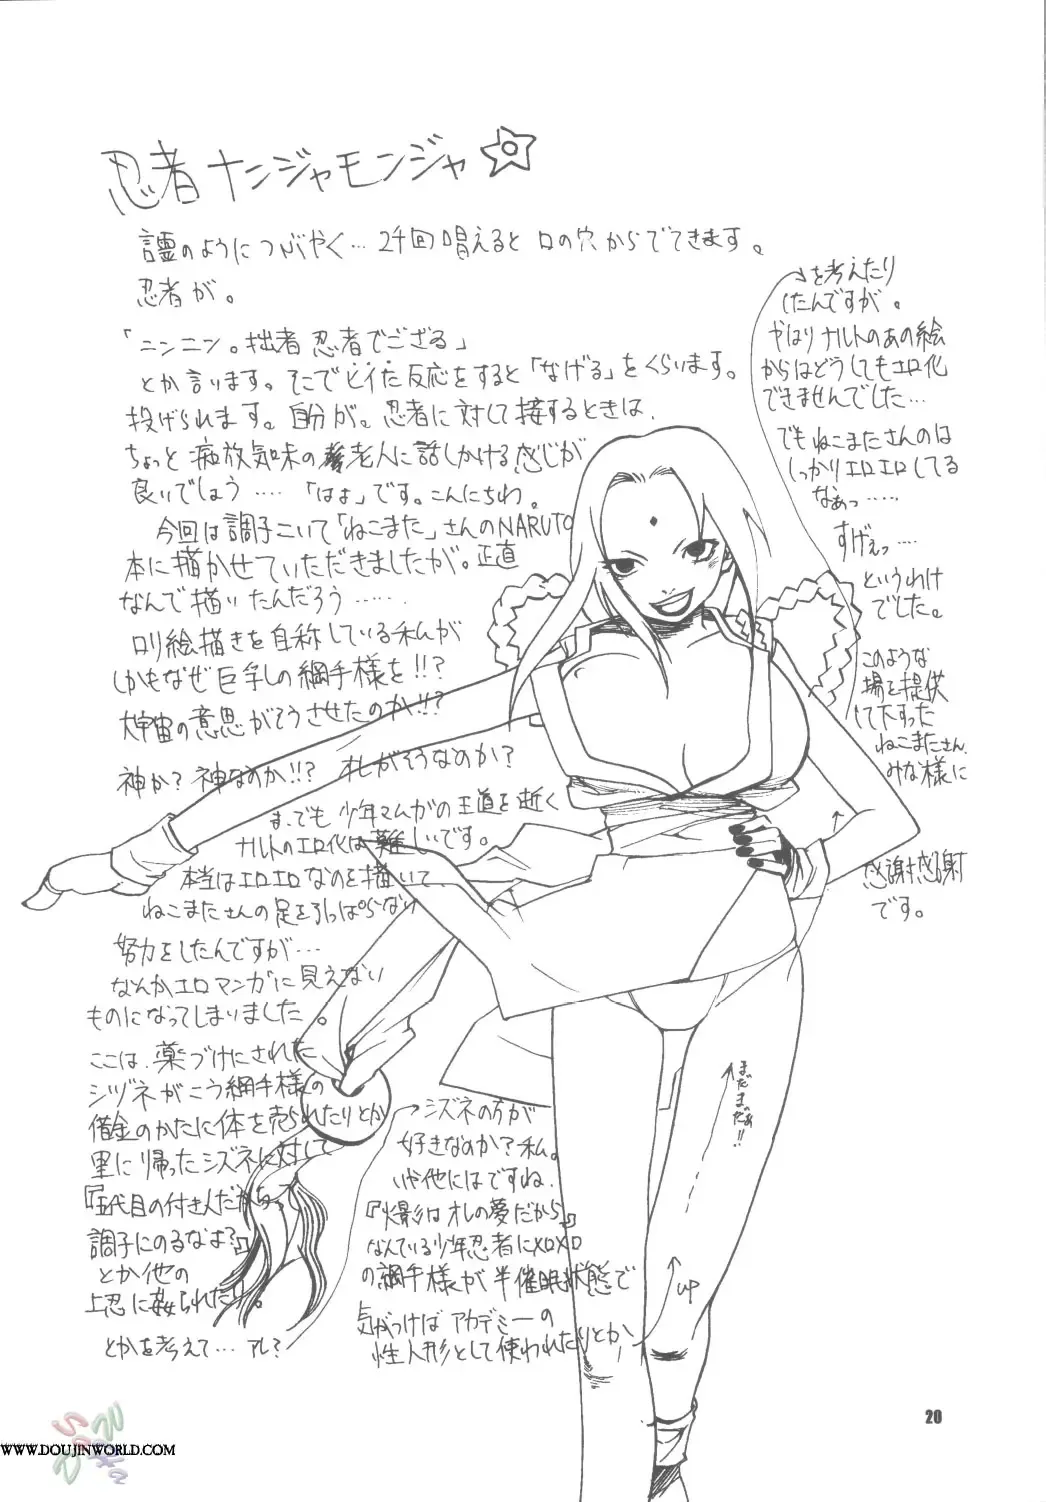 忍者ナンジャモンジャ☆
言霊のようにつぶやく…24回唱えると口の穴からでてきます。
忍者が。
「ニンニン。拙者忍者でござる」
とか言います。そこでヒイた反応をすると「なげる」をくらいます。
投げられます。自分が。忍者に対して接するときは、
ちょっと 気味の 老人に話しかける感じが
良いでしょう……「はよ」です。こんにちわ。
今回は調子こいて「ねこまた」さんのNARUTO
本に描かせていただきましたが。正直
なんで描いたんだろう……
ロリ絵描きを自称している私が
しかもなぜ巨乳しの綱手様を!!?
大宇宙の意思がそうさせたのか!!?
神か?神なのか!!? 札がそうなのか?
ま、でも少年マムガの王道を逝く
ナルトのエロ化は難しいです。
本当はエロエロなのを描いて、
ねこまたさんの足を引っぱらない
努力をしたんですが…
なんかエロマンガに見えない
ものになってしまいました。
ここは、薬づけにされた
シヅネがこう綱手様の
借金のかたに体を売られたりとか
里に帰ったシズネに対して
『五代目の付き人だからって
調子にのるなよ?』
とか他の
上忍に姦られたり。
とかを考えて…アレ?
シズネの方が
好きなのか?私。
いや他にはですね、
『火影はオレの夢だから』
なんている少年忍者にXロXロ
の綱手様が半催眠状態で
気がつけばアカデミーの
性人形として使われたりとか
UP
まだまだぁ!!
を考えたり
したんですが。
やはりナルトのあの絵
からはどうしてもエロ化
できませんでした…
でもねこまたさんのは
しっかりエロエロしてる
なぁっ……
すげぇっ……
というわけ
でした。
このような
場を提供
して下すった
ねこまたさん、
みな様に
感謝感謝
です。
20
WWW.DOUJINWORLD.COM